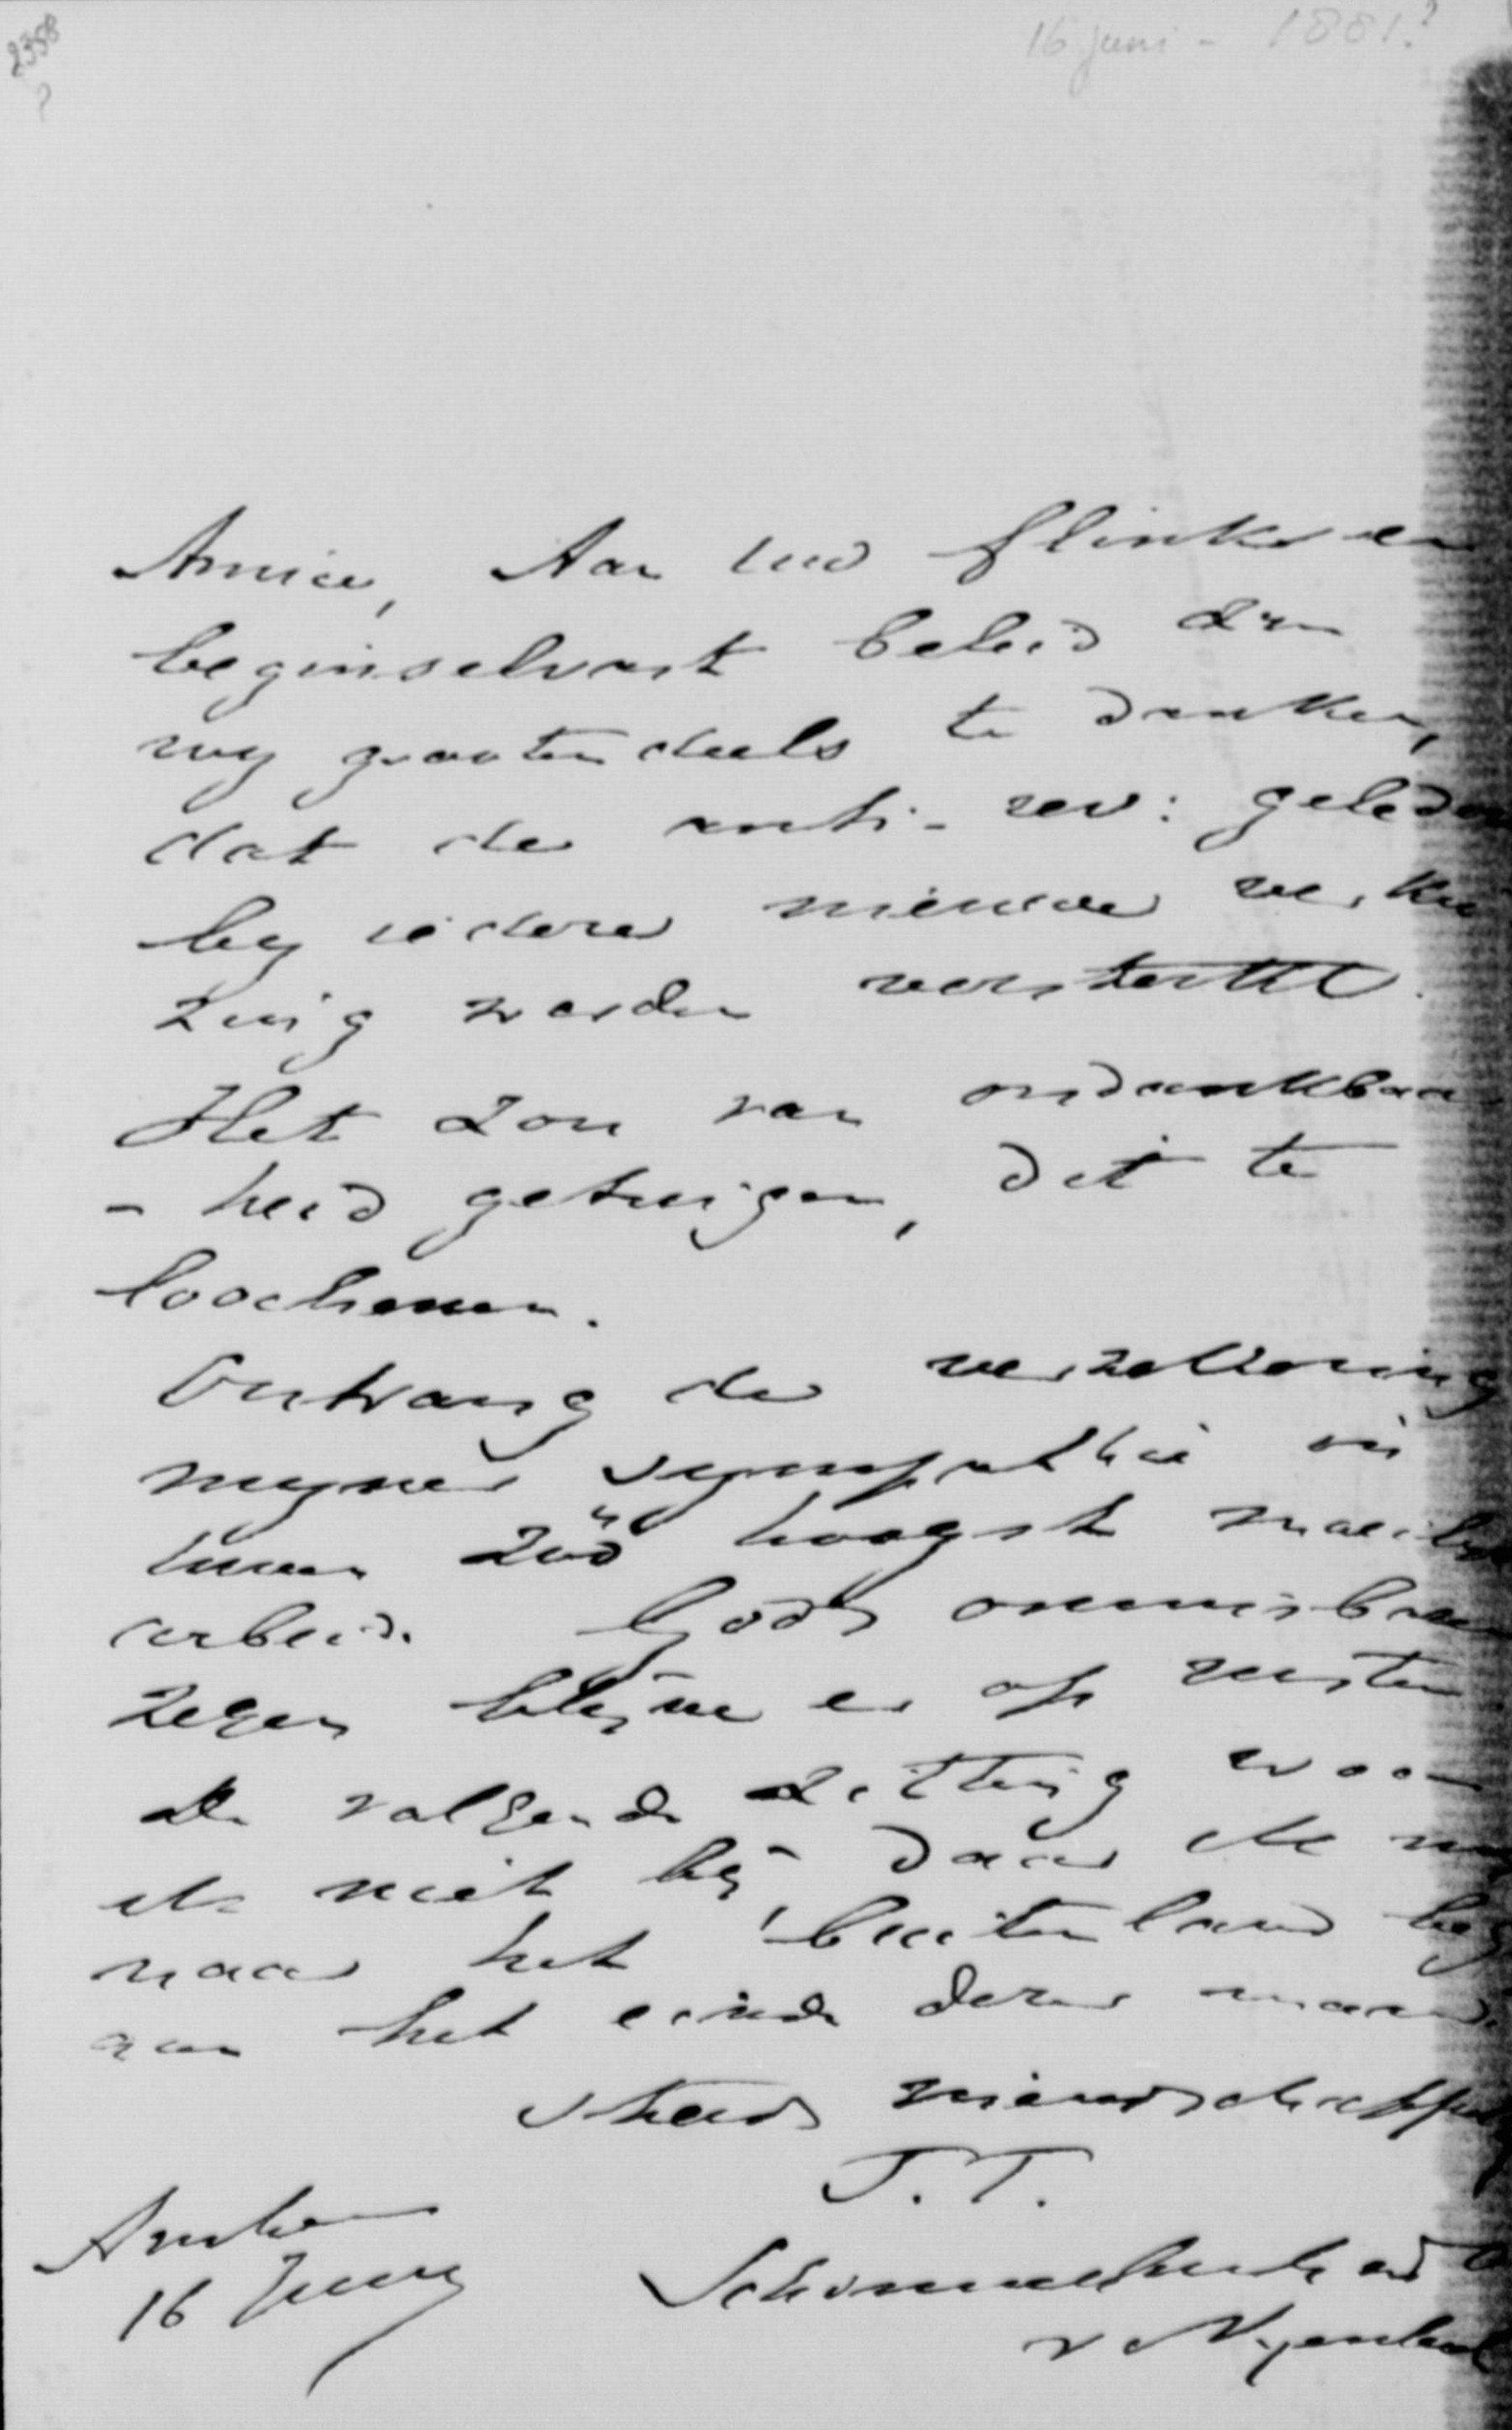 2358
?
16 juni - 1881?
Amice, Aan uw flink en
beginselvast beleid
wy grootendeels te danken,
dat de anti-rev: gelederen
by iedere nieuwe verkie
zing worden versterkt.
Het zou van ondankbaar
- heid getuigen, dit te
loochenen.
Ontvang de verzekering
myner sympathie in
uwen zoo hoogst moeilyk
arbeid. Gods onmisbare
zegen blyve er op rusten.
De volgende zitting woon
ik niet by, daar ik
naar het buitenland
aan het einde dezer maand.
Steeds vriendschappel
T.T.
Schimmelpenninck
v Nyenhuis
Arnhem
16 Juny